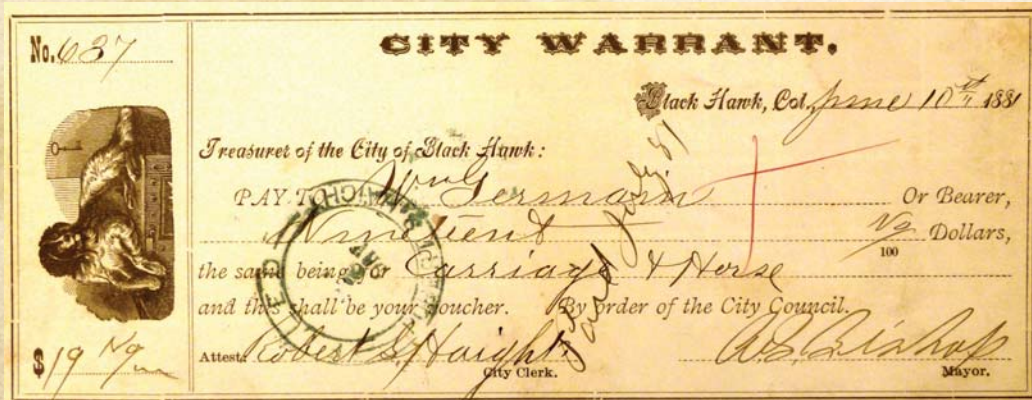 No. 637
CITY WARRANT.
Black Hawk, Col. June 10th 1881
Treasurer of the City of Black Hawk:
PAY TO Wm Germain Or Bearer,
Nineteen & No/100 Dollars,
the same being for Carriage & Horse
and this shall be your voucher. By order of the City Council.
$19 No/
Attest: Robert S. Haight.
City Clerk.
Mayor.
Paid July 81